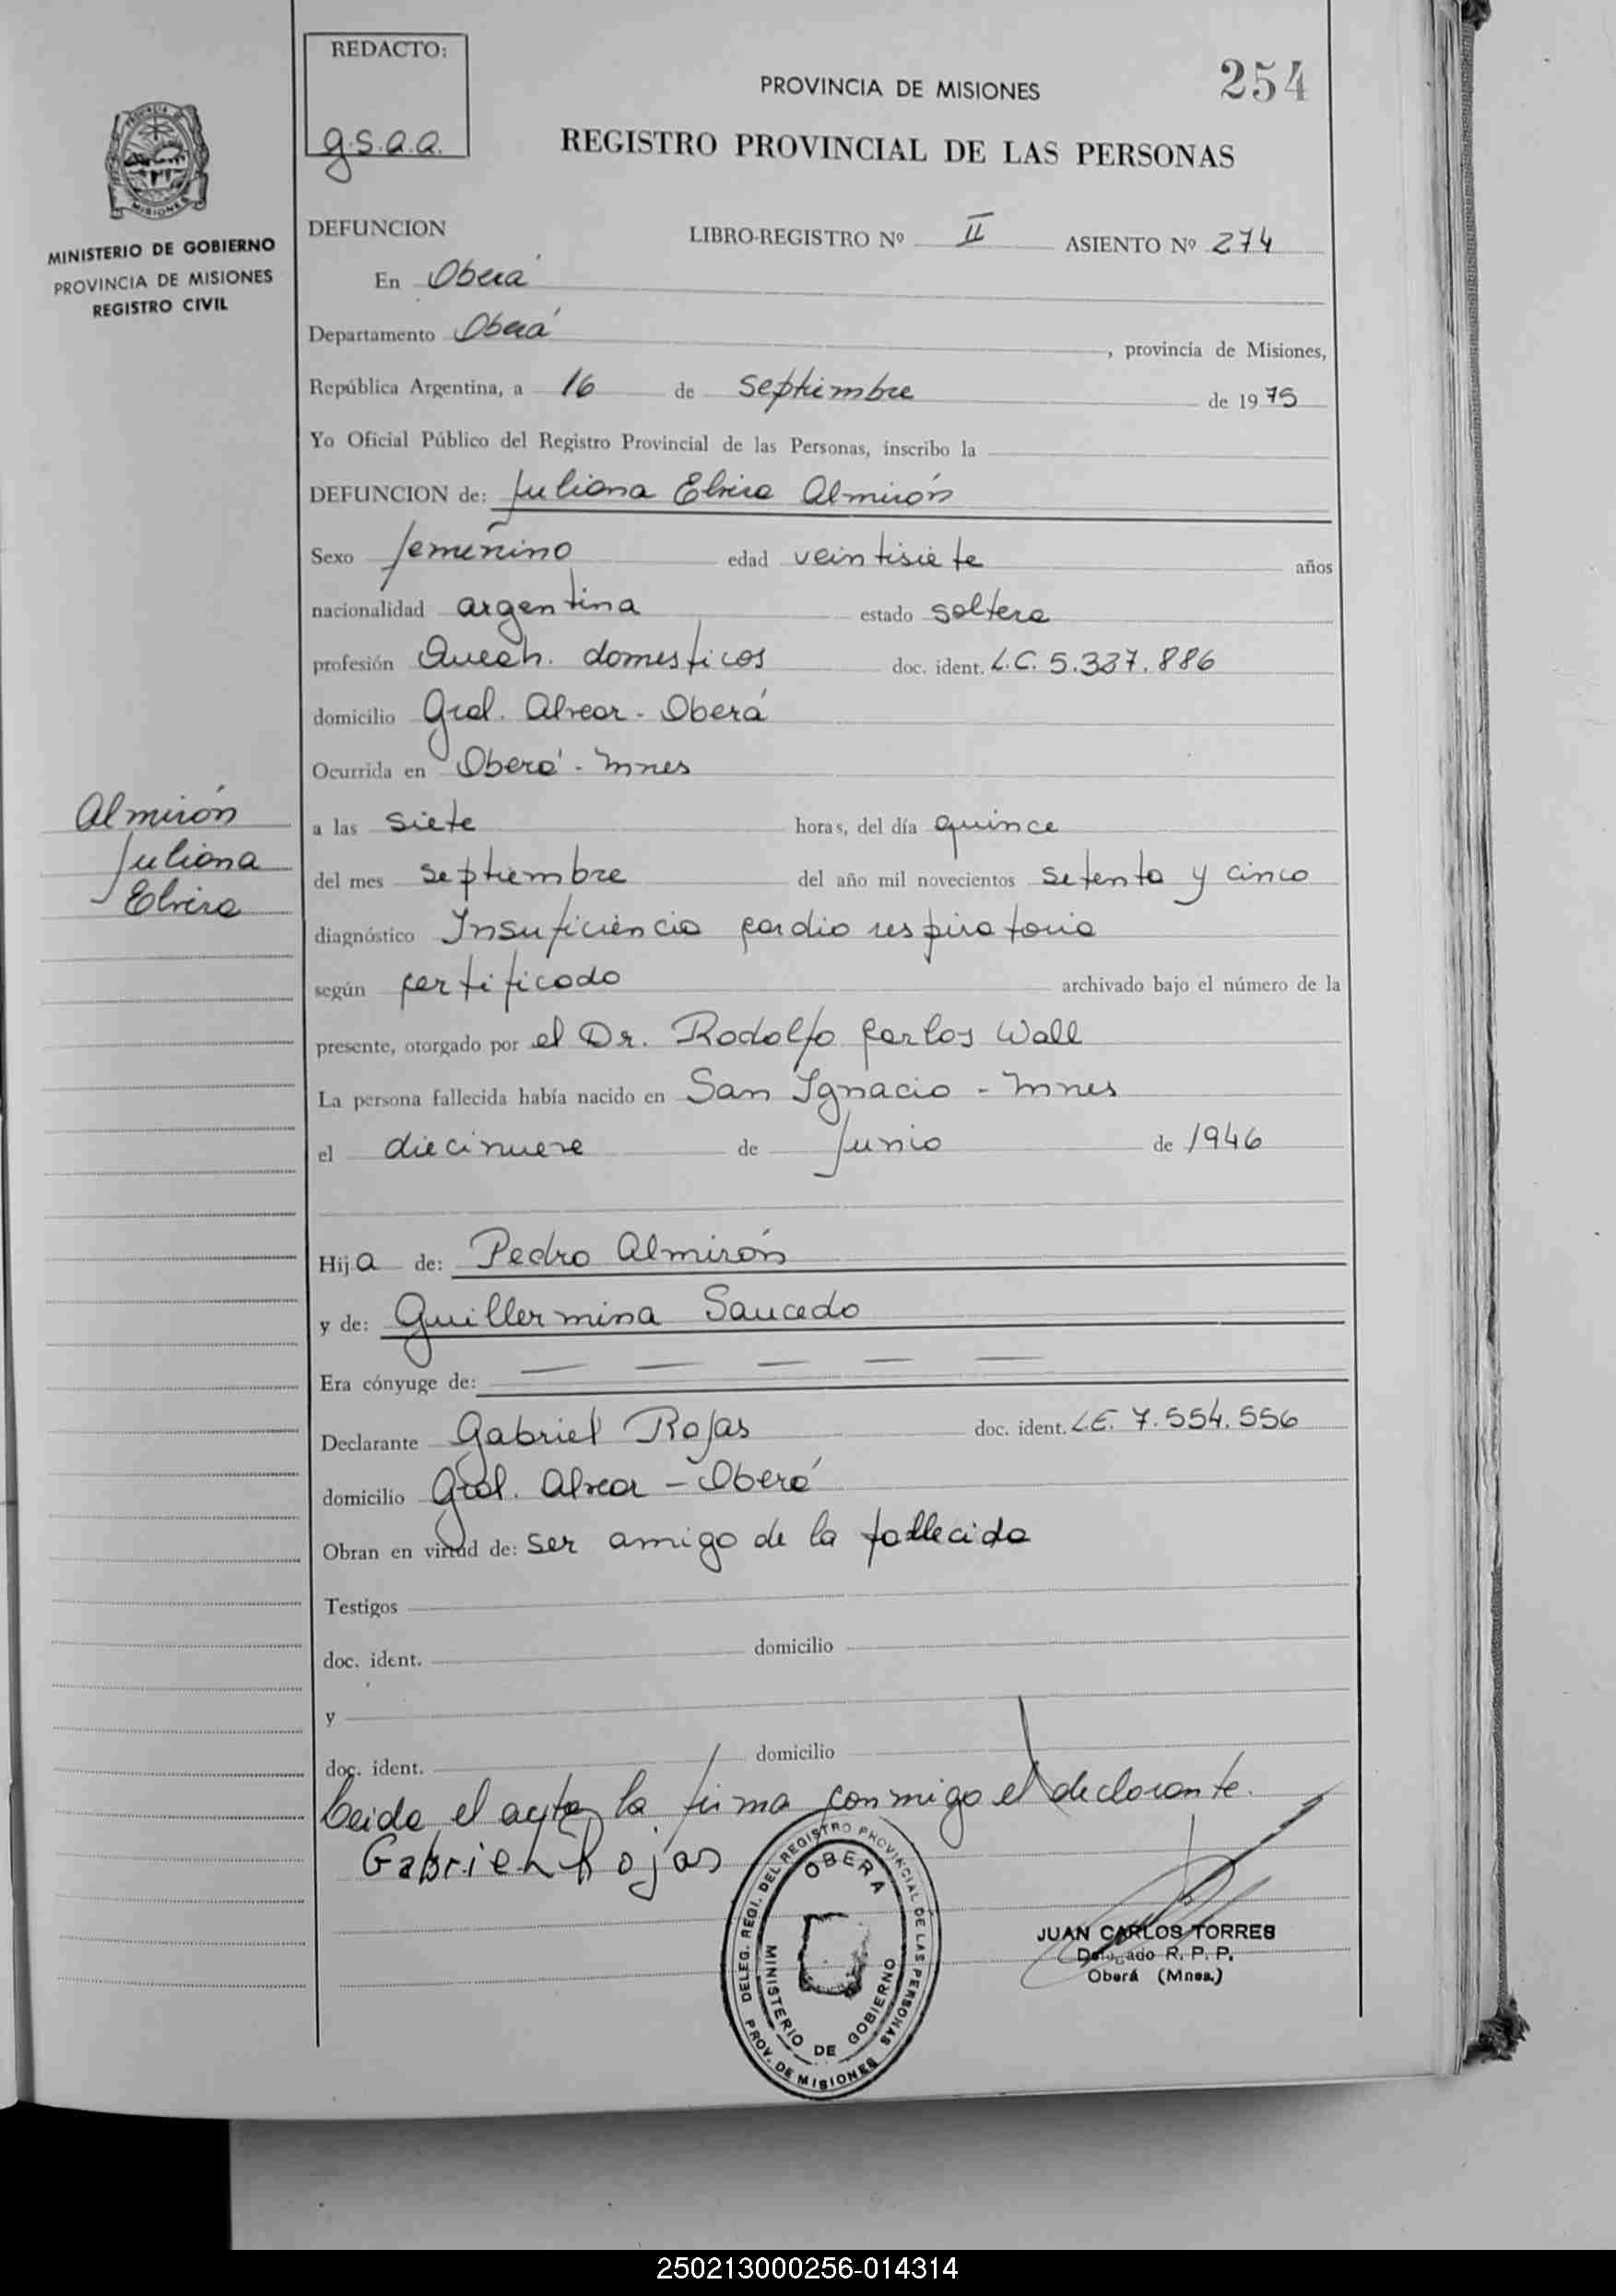 REDACTO:
g.s.a.a.
254
PROVINCIA DE MISIONES
REGISTRO PROVINCIAL DE LAS PERSONAS
MISIONES
MINISTERIO DE GOBIERNO
PROVINCIA DE MISIONES
REGISTRO CIVIL
DEFUNCION LIBRO-REGISTRO Nº II ASIENTO Nº 274
En Oberá
Departamento Oberá, provincia de Misiones,
República Argentina, a 16 de septiembre de 1975
Yo Oficial Público del Registro Provincial de las Personas, inscribo la
DEFUNCION de: Juliana Elvira Almirón
Sexo femenino edad veintisiete años
nacionalidad argentina estado soltera
profesión Queah. domesticos doc. ident. L.C. 5.337.886
domicilio Gral. Alvear - Oberá
Ocurrida en Oberá - Mnes
Almirón
Juliana
Elvira
a las siete horas, del día quince
del mes septiembre del año mil novecientos setenta y cinco
diagnóstico Insuficiencia cardio respiratoria
según certificado archivado bajo el número de la
presente, otorgado por el Dr. Rodolfo Carlos Wall
La persona fallecida había nacido en San Ignacio - Mnes
el diecinueve de Junio de 1946
Hija de: Pedro Almirón
y de: Guillermina Saucedo
Era cónyuge de: — — — — —
Declarante Gabriel Rojas doc. ident. L.E. 7.554.556
domicilio Gral. Alvear - Oberá
Obran en virtud de: ser amigo de la fallecida
Testigos
doc. ident. domicilio
y
doc. ident. domicilio
Leida el acta, la firma conmigo el declarante.
Gabriel Rojas
DELEG. REGI. DEL REGISTRO PROVINCIAL DE LAS PERSONAS
PROV. DE MISIONES
OBERA
MINISTERIO DE GOBIERNO
JUAN CARLOS TORRES
Delegado R. P. P.
Oberá (Mnes.)
250213000256-014314